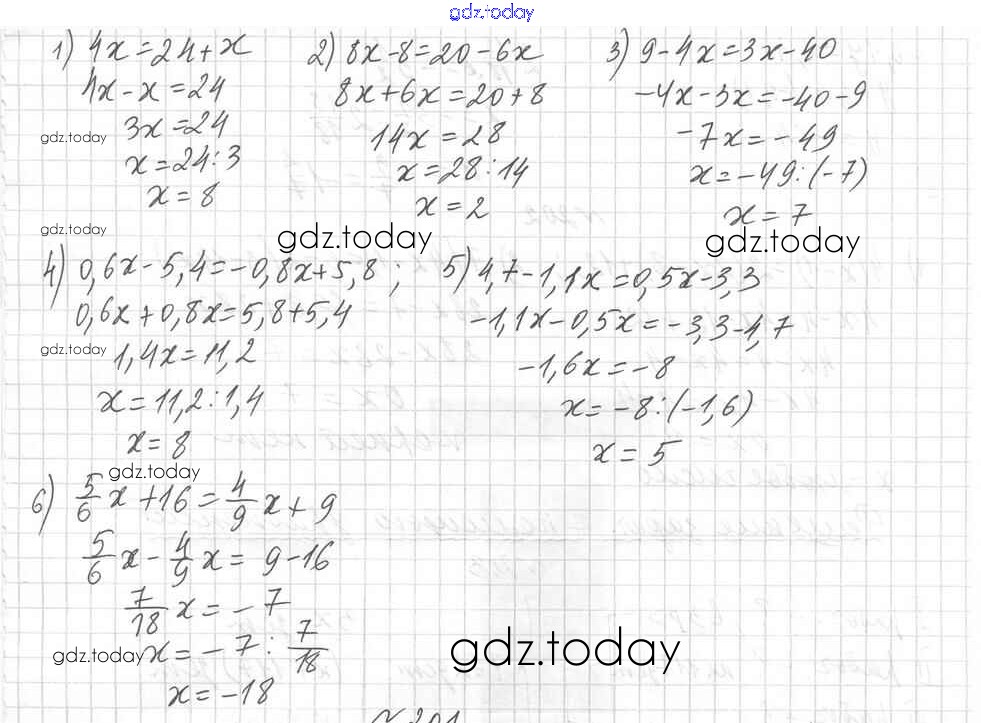 gdz.today
1) 4x = 24 + x
4x - x = 24
3x = 24
gdz.today
x = 24 : 3
x = 8
2) 8x - 8 = 20 - 6x
8x + 6x = 20 + 8
14x = 28
x = 28 : 14
x = 2
3) 9 - 4x = 3x - 40
-4x - 3x = -40 - 9
-7x = -49
x = -49 : (-7)
x = 7
gdz.today
gdz.today
gdz.today
4) 0,6x - 5,4 = -0,8x + 5,8 ;
0,6x + 0,8x = 5,8 + 5,4
gdz.today
1,4x = 11,2
x = 11,2 : 1,4
x = 8
5) 4,7 - 1,1x = 0,5x - 3,3
-1,1x - 0,5x = -3,3 - 4,7
-1,6x = -8
x = -8 : (-1,6)
x = 5
gdz.today
6) 5/6 x + 16 = 4/9 x + 9
5/6 x - 4/9 x = 9 - 16
7/18 x = -7
x = -7 : 7/18
gdz.today
x = -18
gdz.today